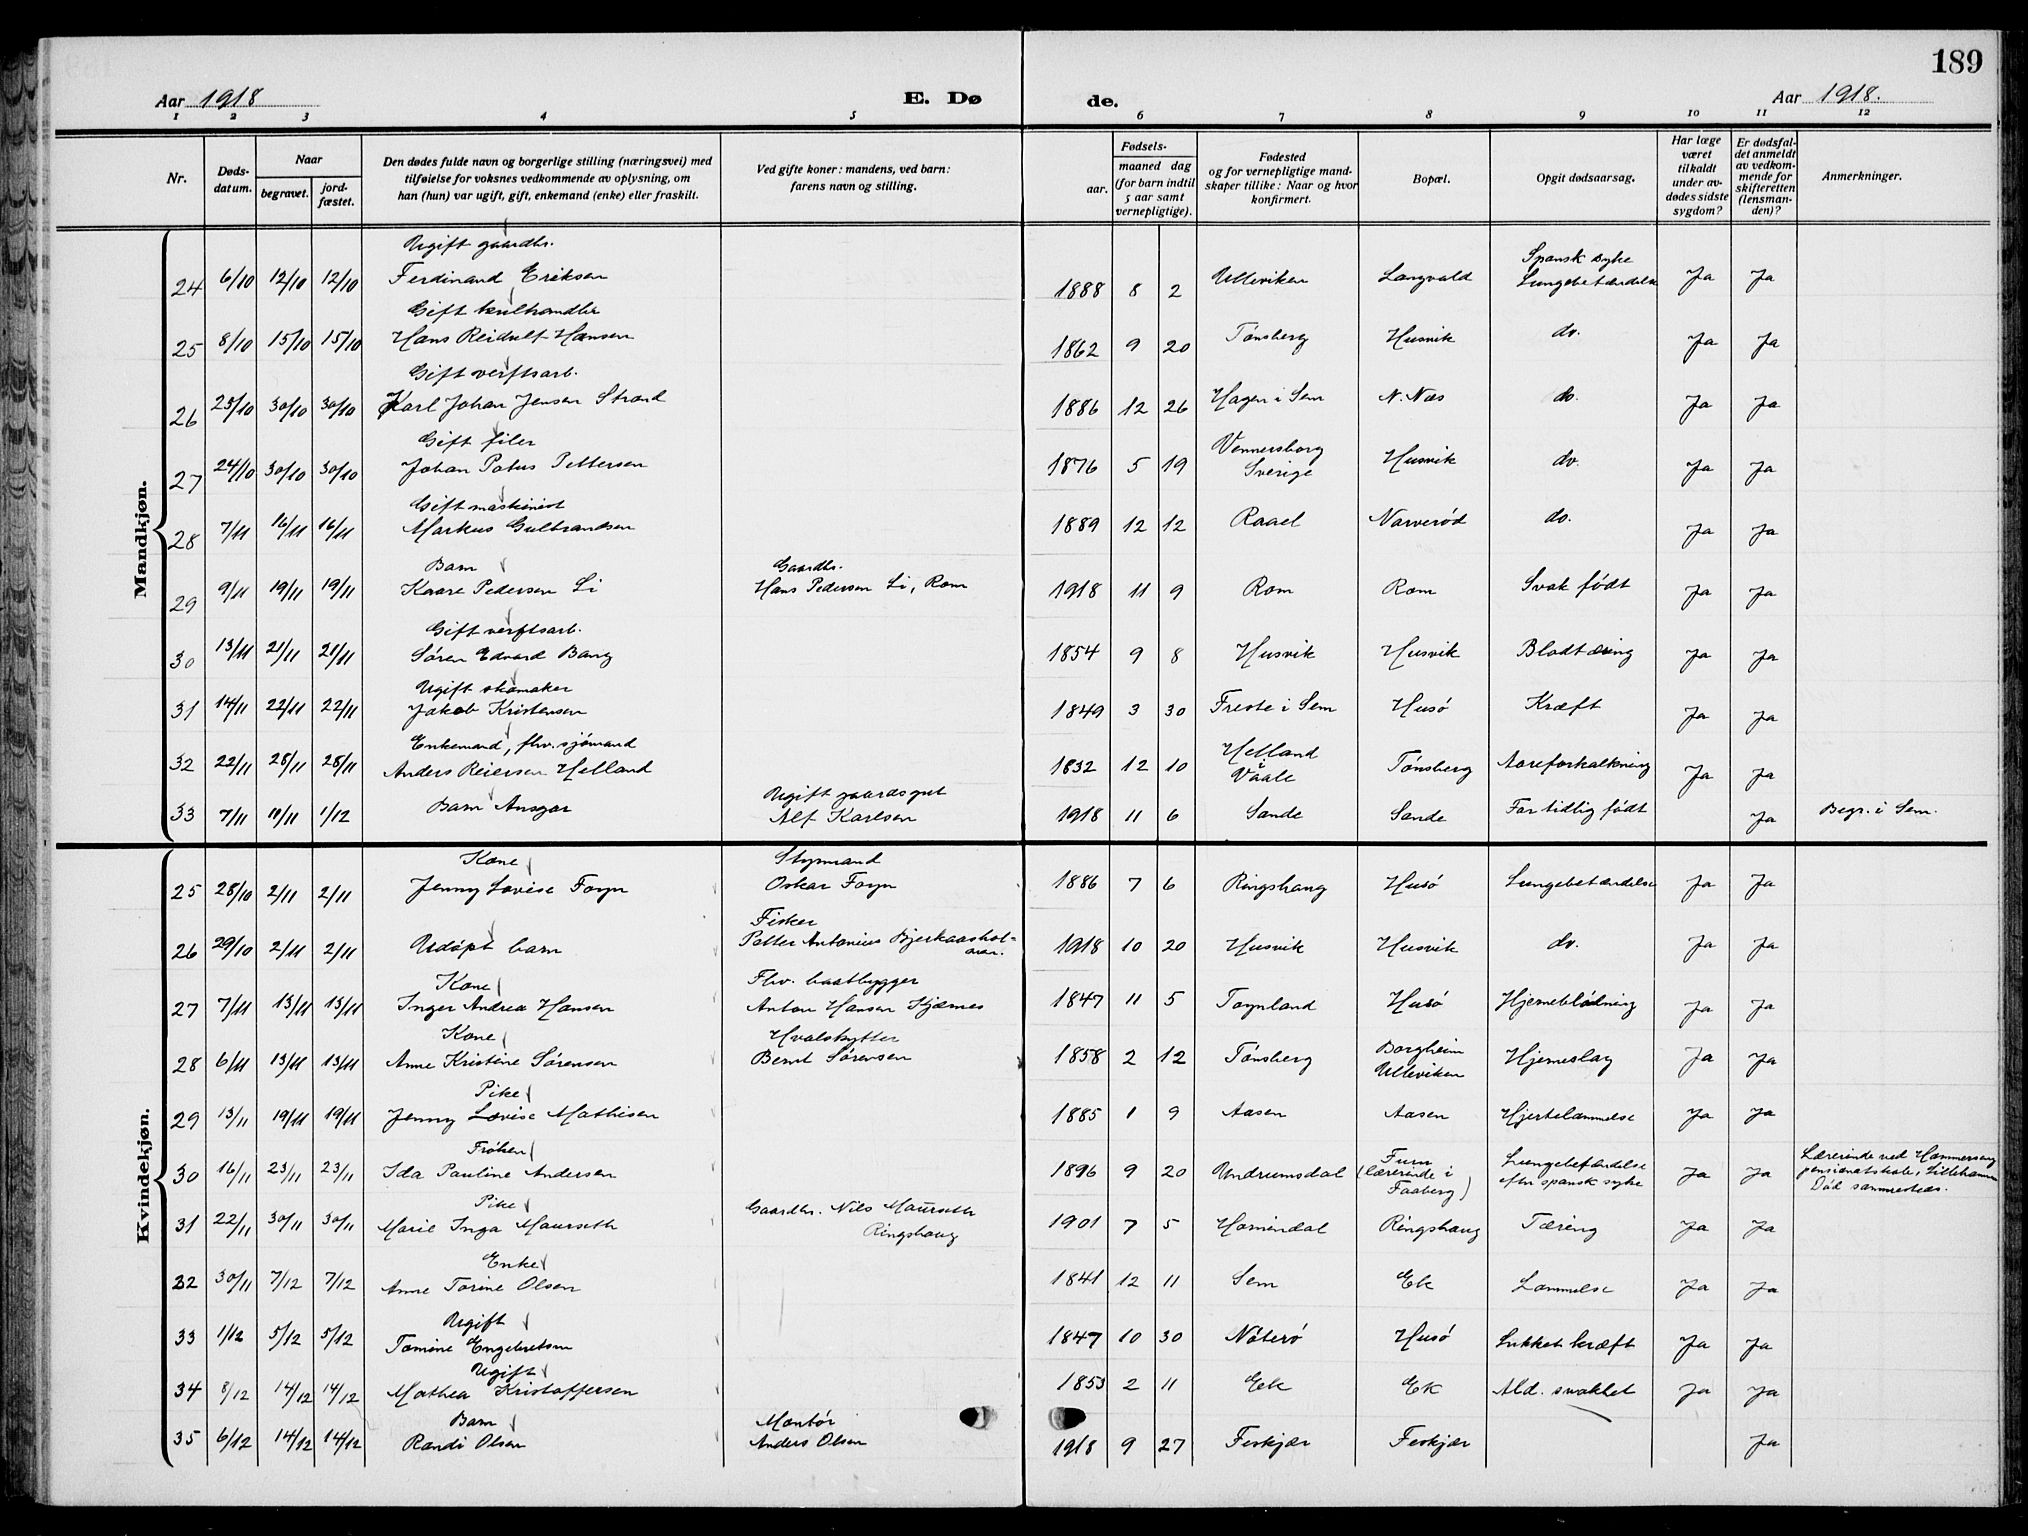 189
Aar 1918
E. Dø
de.
Aar 1918.
1 2 3 4 5 6 7 8 9 10 11 12
Nr.
Døds-
datum.
Naar
begravet.
jord-
fæstet.
Den dødes fulde navn og borgerlige stilling (næringsvei) med
tilføielse for voksnes vedkommende av oplysning, om
han (hun) var ugift, gift, enkemand (enke) eller fraskilt.
Ved gifte koner: mandens, ved barn:
farens navn og stilling.
Fødsels-
aar.
maaned dag
(for barn indtil
5 aar samt
vernepligtige).
Fødested
og for vernepligtige mand-
skaper tillike: Naar og hvor
konfirmert.
Bopæl.
Opgit dødsaarsag.
Har læge
været
tilkaldt
under av-
dødes sidste
sygdom?
Er dødsfal-
det anmeldt
av vedkom-
mende for
skifteretten
(lensman-
den)?
Anmerkninger.
Mandkjøn.
Ugift gaardbr. Spansk syke
24 6/10 12/10 12/10 Ferdinand Eriksen 1888 8 2 Ulleviken Langvald Lungebetændelse Ja Ja
Gift kulhandler
25 8/10 15/10 15/10 Hans Reidulf Hansen 1862 9 20 Tønsberg Husvik do. Ja Ja
Gift verftsarb.
26 23/10 30/10 30/10 Karl Johan Jensen Strand 1886 12 26 Hagen i Sem N. Næs do. Ja Ja
Gift filer
27 24/10 30/10 30/10 Johan Petrus Pettersen 1876 5 19 Vennersborg Sverige Husvik do. Ja Ja
Gift maskinist
28 7/11 16/11 16/11 Markus Gulbrandsen 1889 12 12 Raael Narverød do. Ja Ja
Barn Gaardbr.
29 9/11 19/11 19/11 Kaare Pedersen Li Hans Pedersen Li, Rom 1918 11 9 Rom Rom Svak født Ja Ja
Gift verftsarb.
30 13/11 21/11 21/11 Søren Edvard Bang 1854 9 8 Husvik Husvik Blodtæring Ja Ja
Ugift skomaker
31 14/11 22/11 22/11 Jakob Kristensen 1849 3 30 Freste i Sem Husø Kræft Ja Ja
Enkemand, fhv. sjømand
32 22/11 28/11 28/11 Anders Reiersen Helland 1832 12 10 Helland i Vaale Tønsberg Aareforkalkning Ja Ja
Ugift gaardsgut
33 7/11 11/11 1/12 Barn Ansgar Alf Karlsen 1918 11 6 Sande Sande For tidlig født Ja Begr. i Sem.
Kvindekjøn.
Kone Styrmand
25 28/10 2/11 2/11 Jenny Lovise Foyn Oskar Foyn 1886 7 6 Ringshaug Husø Lungebetændelse Ja Ja
Fisker
26 29/10 2/11 2/11 Udøpt barn Petter Antonius Bjerkaashol- 1918 10 20 Husvik Husvik do. Ja Ja
Kone Fhv. baatbygger
27 7/11 13/11 13/11 Inger Andrea Hansen Anton Hansen Hjærnes 1847 11 5 Toynland Husø Hjerneblødning Ja Ja
Kone Hvalskytter
28 6/11 13/11 13/11 Anne Kristine Sørensen Bernt Sørensen 1858 2 12 Tønsberg Borgheim Ulleviken Hjerneslag Ja Ja
Pike
29 13/11 19/11 19/11 Jenny Lovise Mathisen 1885 1 9 Aasen Aasen Hjertelammelse Ja Ja
Frøken
30 16/11 23/11 23/11 Ida Pauline Andersen 1896 9 20 Undrumsdal Furu (lærerinde i Faaberg) Lungebetændelse efter spansk syke Ja Ja Lærerinde ved Hammerseng pensionatskole, Lillehammer Død sammesteds.
Pike
31 22/11 30/11 30/11 Marie Inga Maurseth Gaardbr. Nils Maurseth Ringshaug 1901 7 5 Hornindal Ringshaug Tæring Ja Ja
Enke
32 30/11 7/12 7/12 Anne Torine Olsen 1841 12 11 Sem Ek Lammelse Ja Ja
Ugift
33 1/12 5/12 5/12 Tomine Engebretsen 1847 10 30 Nøterø Husø Lukket kræft Ja Ja
Ugift
34 8/12 14/12 14/12 Mathea Kristoffersen 1853 2 11 Eek Ek Ald. svakhet Ja Ja
Barn Montør
35 6/12 14/12 14/12 Randi Olsen Anders Olsen 1918 9 27 Feskjær Feskjær Ja